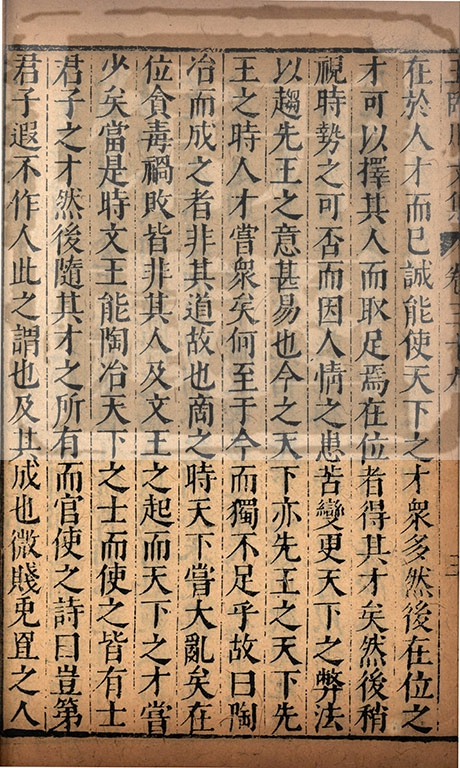 王臨川文集 卷三十九 三
在於人才而已誠能使天下之才衆多然後在位之
才可以擇其人而取足焉在位者得其才矣然後稍
視時勢之可否而因人情之患苦變更天下之弊法
以趨先王之意甚易也今之天下亦先王之天下先
王之時人才嘗衆矣何至于今而獨不足乎故曰陶
冶而成之者非其道故也商之時天下嘗大亂矣在
位貪毒禍敗皆非其人及文王之起而天下之才嘗
少矣當是時文王能陶冶天下之士而使之皆有士
君子之才然後隨其才之所有而官使之詩曰豈第
君子遐不作人此之謂也及其成也微賤兎罝之人